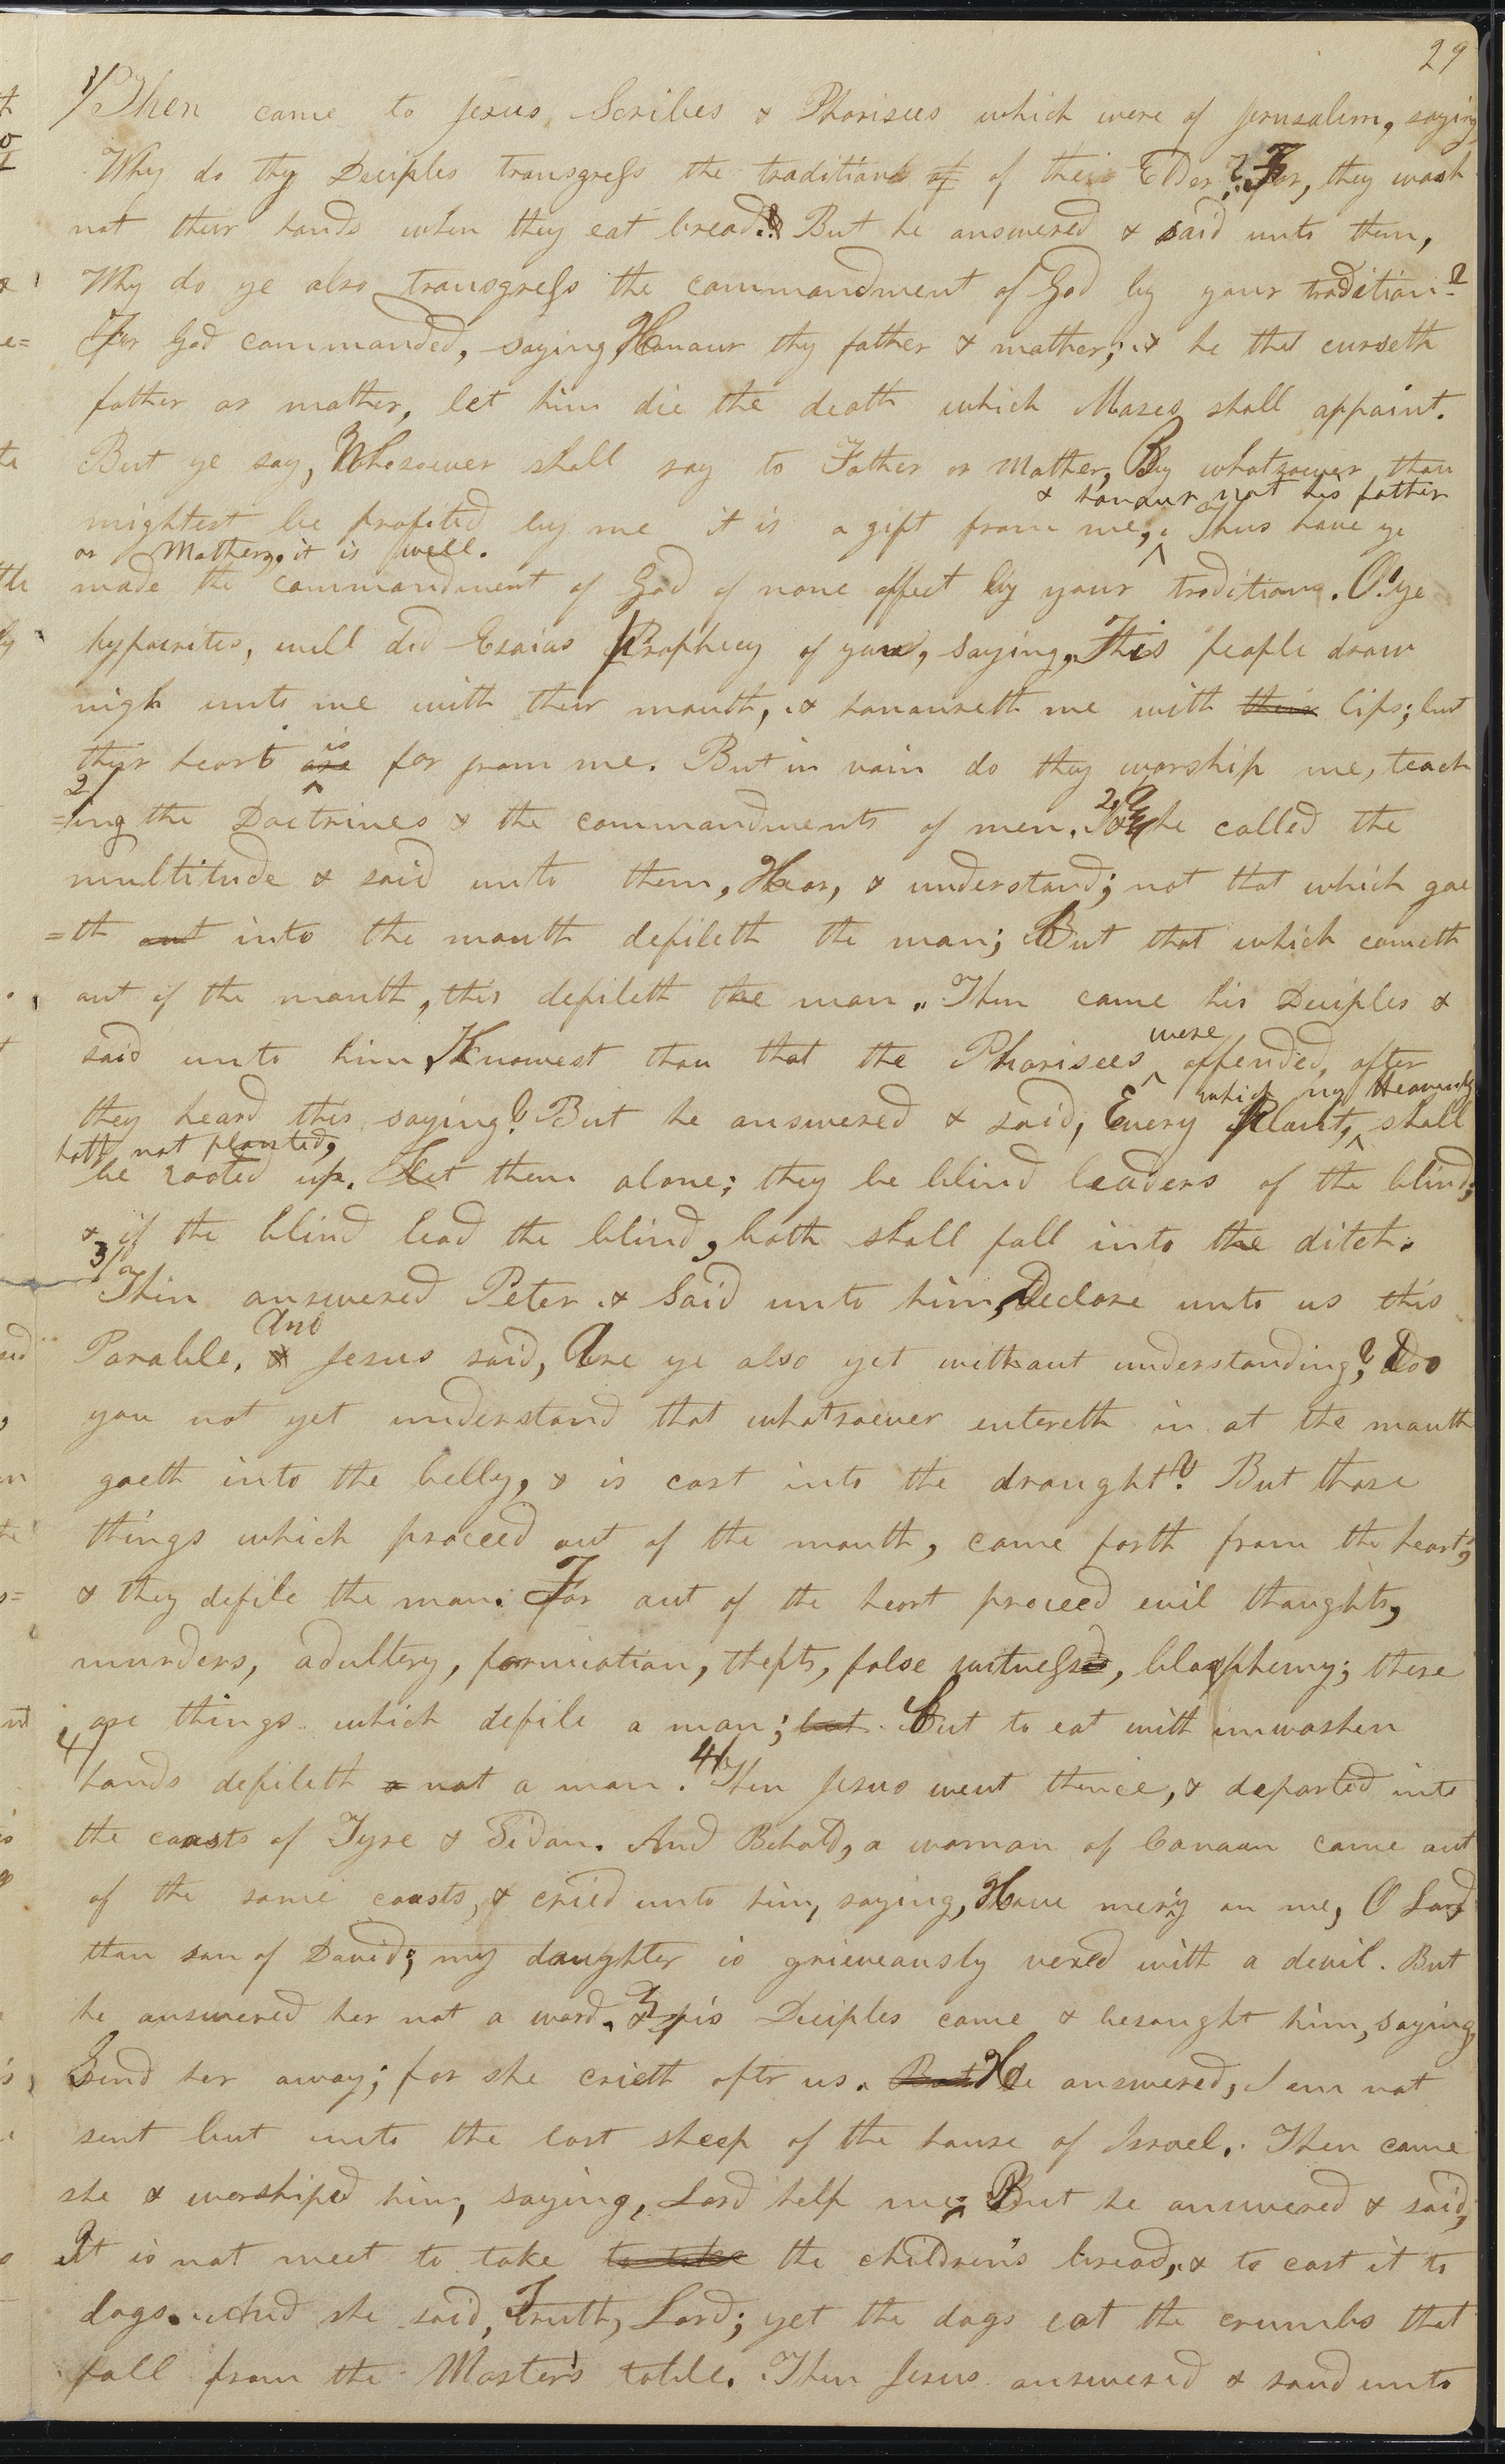 29
1/ Then came to Jesus, Scribes & Pharisees which were of Jerusalem, saying,
Why do thy Deciples transgress the traditions of of their Elders? For, they wash
not their hands when they eat bread. But he answered & said unto them,
Why do ye also transgress the commandment of God by your tradition?
For God commanded, saying, Honour thy father & mother; & he that curseth
father or mother, let him die the death which Moses shall appoint.
But ye say, Whosoever shall say to Father or Mother, By whatsoever thou
& honour not his father
mightest be profited by me it is a gift from me, Thus have ye
or Mother, it is well.
made the commandment of God of none affect by your tradition. O! ye
hypocrites, well did Esaias Prophecy of you, saying, This people draw
nigh unto me with their mouth, & honoureth me with their lips; but
is
their heart are far from me. But in vain do they worship me, teach
2/
=ing the Doctrines & the commandments of men. 2 And he called the
multitude & said unto them, Hear, & understand; not that which goe
=th out into the mouth defileth the man; But that which cometh
out of the mouth, this defileth the man. Then came his Deciples &
were
said unto him, Knowest thou that the Pharisees offended, after
which my Heavenly
they heard this saying? But he answered & said, Every Plant, shall
hath not planted,
be rooted up. Let them alone; they be blind leaders of the blind;
& if the blind lead the blind, both shall fall into the ditch.
3/ Then answered Peter & Said unto him, Declare unto us this
And
Parable. & Jesus said, Are ye also yet without understanding? Do
you not yet understand that whatsoever entereth in at the mouth
goeth into the belly, & is cast into the draught? But those
things which proceed out of the mouth, come forth from the heart,
& they defile the man. For out of the heart proceed evil thoughts,
murders, adultery, fornication, thefts, false witness, blasphemy; these
are things which defile a man; but But to eat with unwashen
4/
hands defileth a not a man. 4/ Then Jesus went thence, & departed into
the coasts of Tyre & Sidon. And Behold, a woman of Canaan came out
of the same coasts, & cried unto him, saying, Have mercy on me, O Lord
thou son of David; my daughter is grieveously vexed with a devil. But
he answered her not a word. & his Deciples came & besought him, saying,
Send her away; for she crieth aftr us. But He answered, I am not
sent but unto the lost sheep of the house of Israel. Then came
she & worshiped him, saying, Lord help me; But he answered & said,
It is not meet to take to take the children's bread, & to cast it to
dogs. And she said, Truth, Lord; yet the dogs eat the crumbs that
fall from the Master's table. Then Jesus answered & said unto